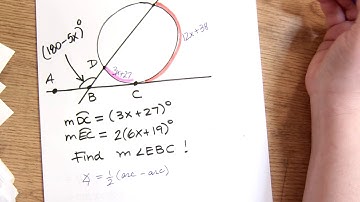 (180-5x)°
12x+38
D
3x+27
A
B
C
mDC = (3x+27)°
mEC = 2(6x+19)°
Find m∠EBC !
∡ = 1/2 (arc - arc)